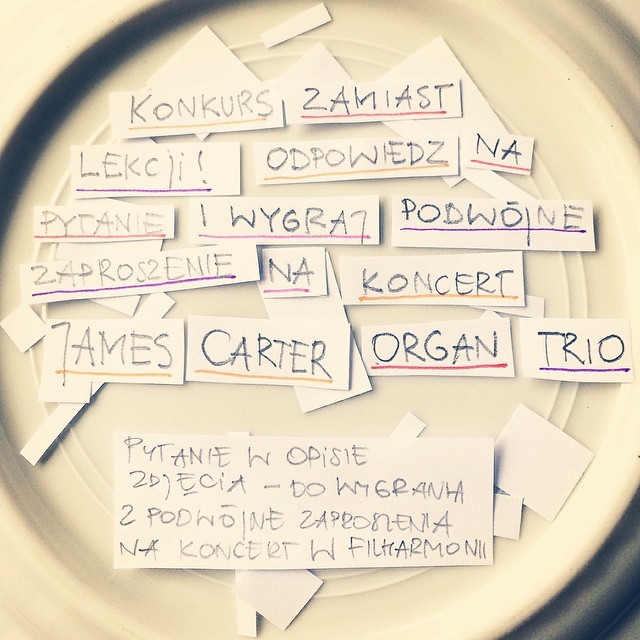 KONKURS ZAMIAST
LEKCJI! ODPOWIEDZ NA
PYTANIE I WYGRAJ PODWÓJNE
ZAPROSZENIE NA KONCERT
JAMES CARTER ORGAN TRIO
PYTANIE W OPISIE
ZDJĘCIA – DO WYGRANIA
2 PODWÓJNE ZAPROSZENIA
NA KONCERT W FILHARMONII